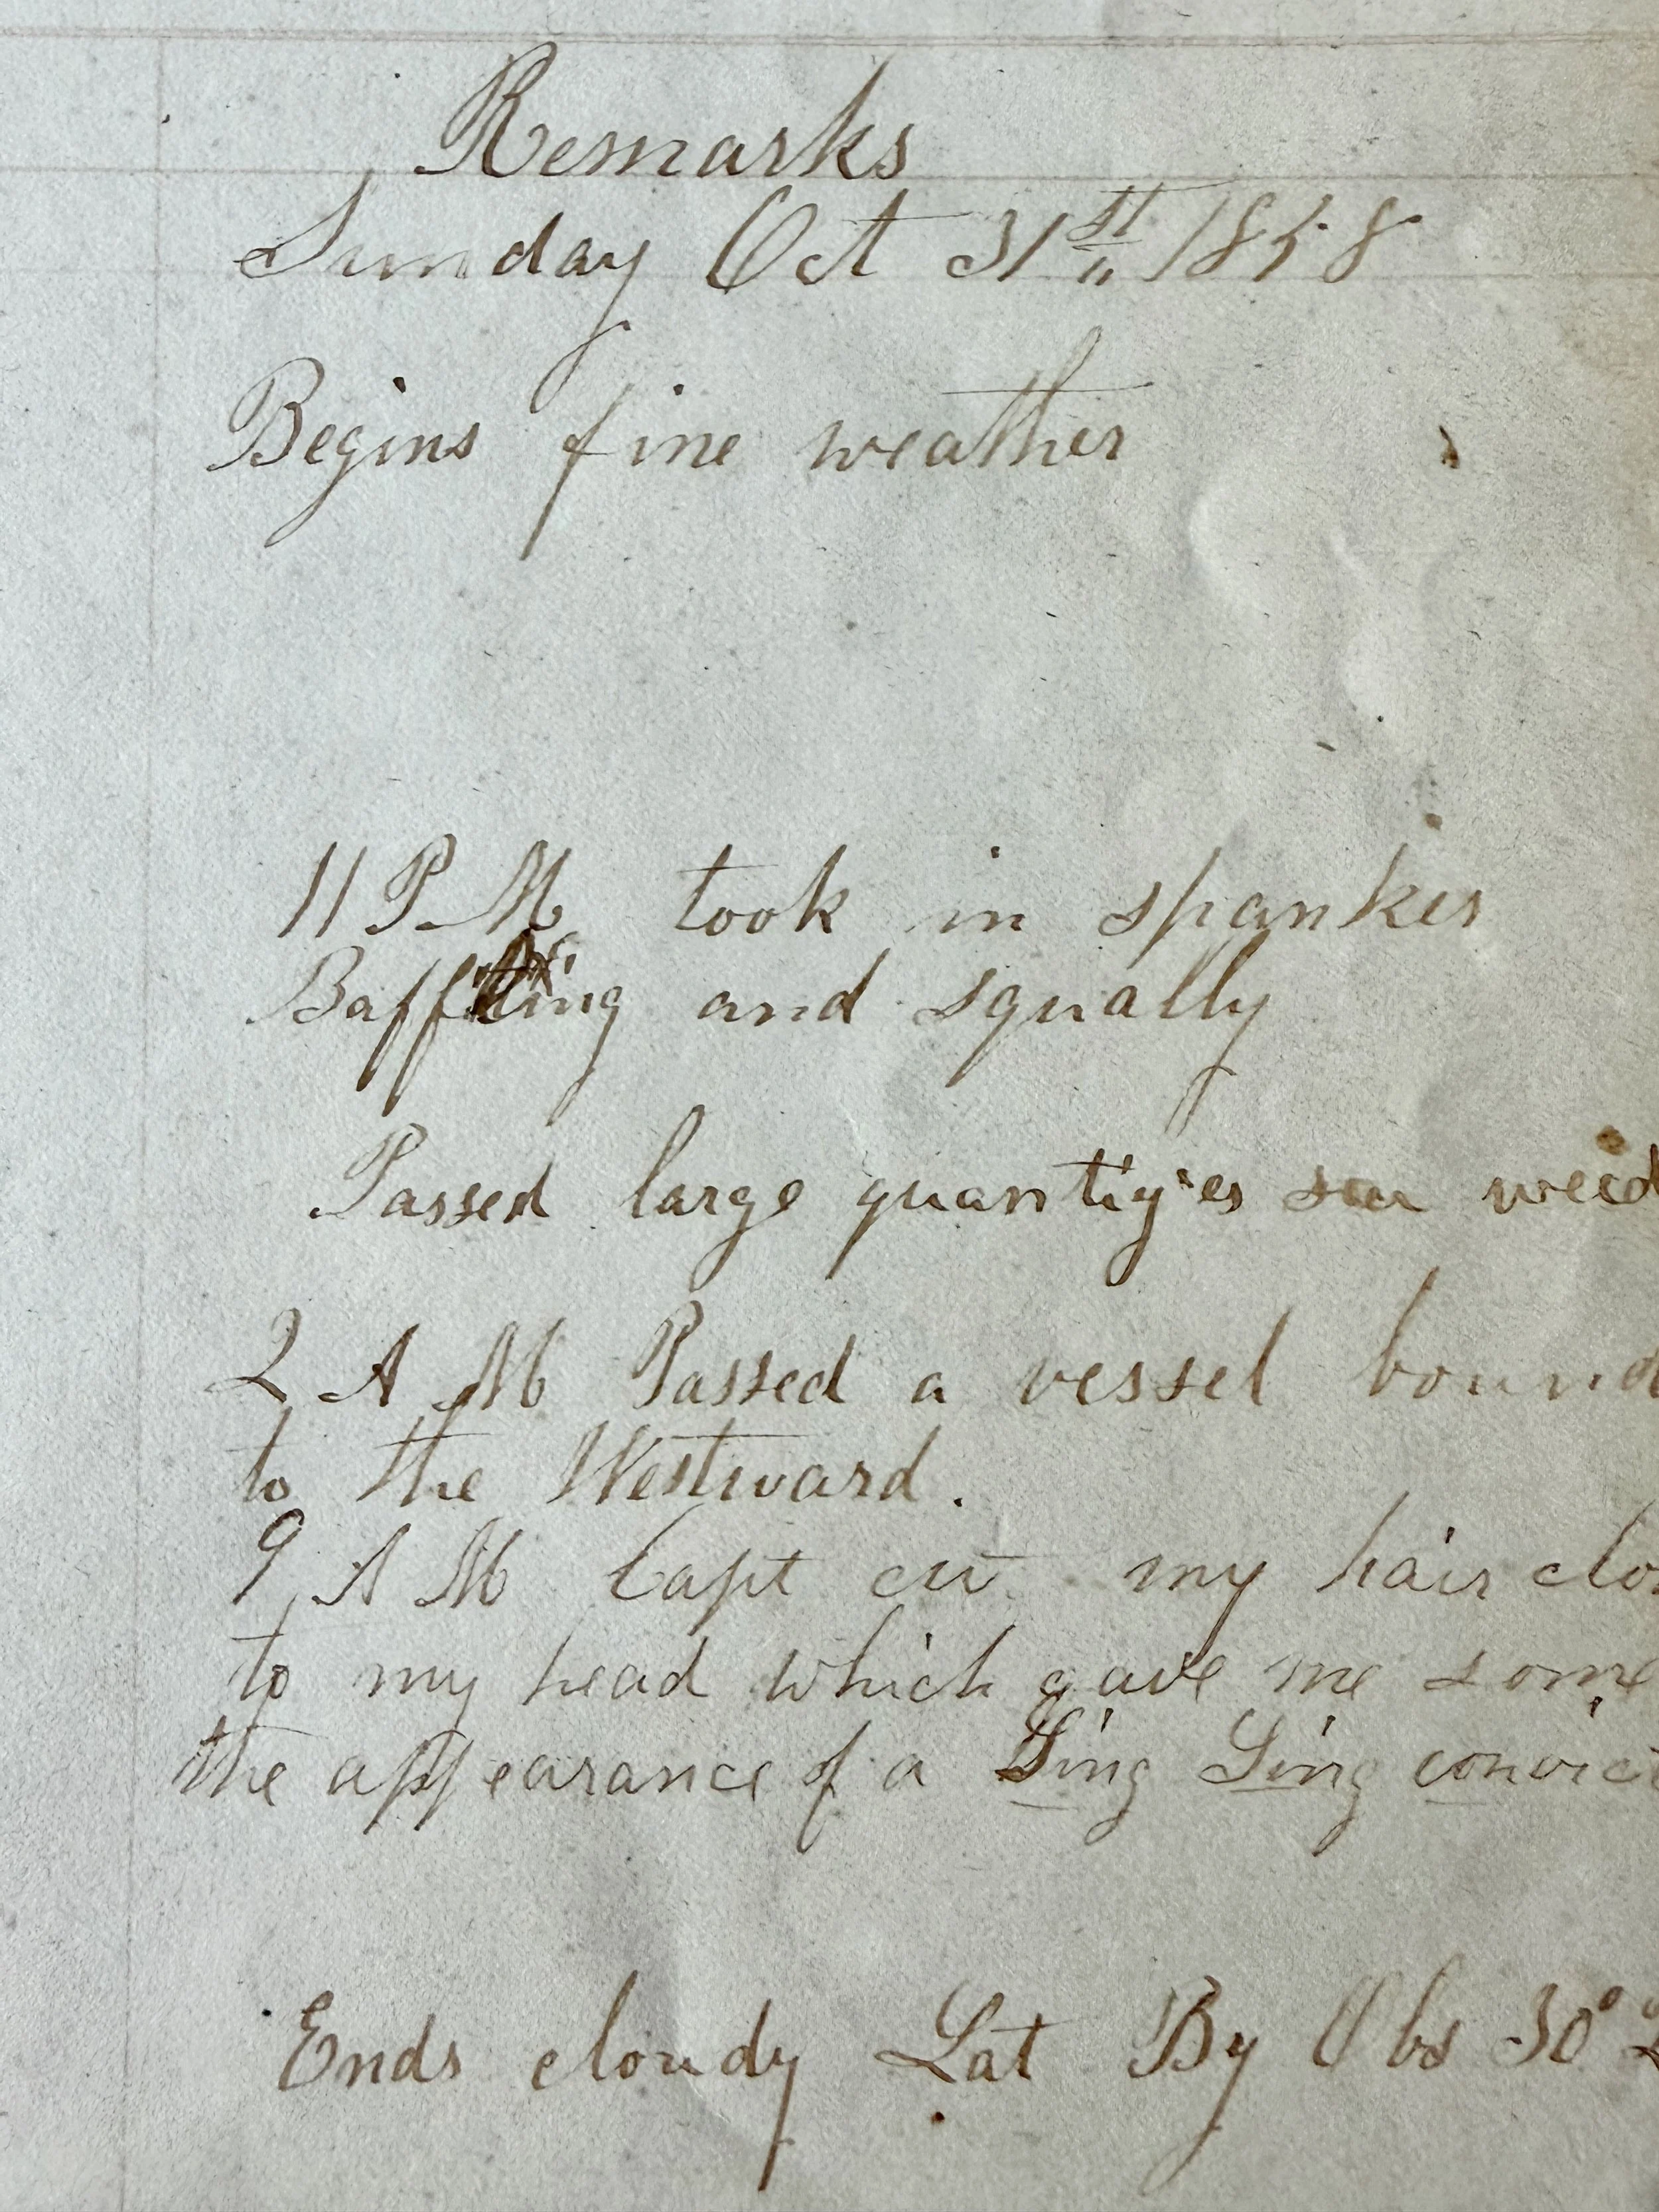 Remarks
Sunday Oct 31st 1858
Begins fine weather
11 P M took in spanker
Baffling and squally
Passed large quantiyes sea weed
2 A M Passed a vessel bound
to the Westward.
9 A M Capt cut my hair clo
to my head which gave me some
the appearance of a Sing Sing convict
Ends cloudy Lat By Obs 30°